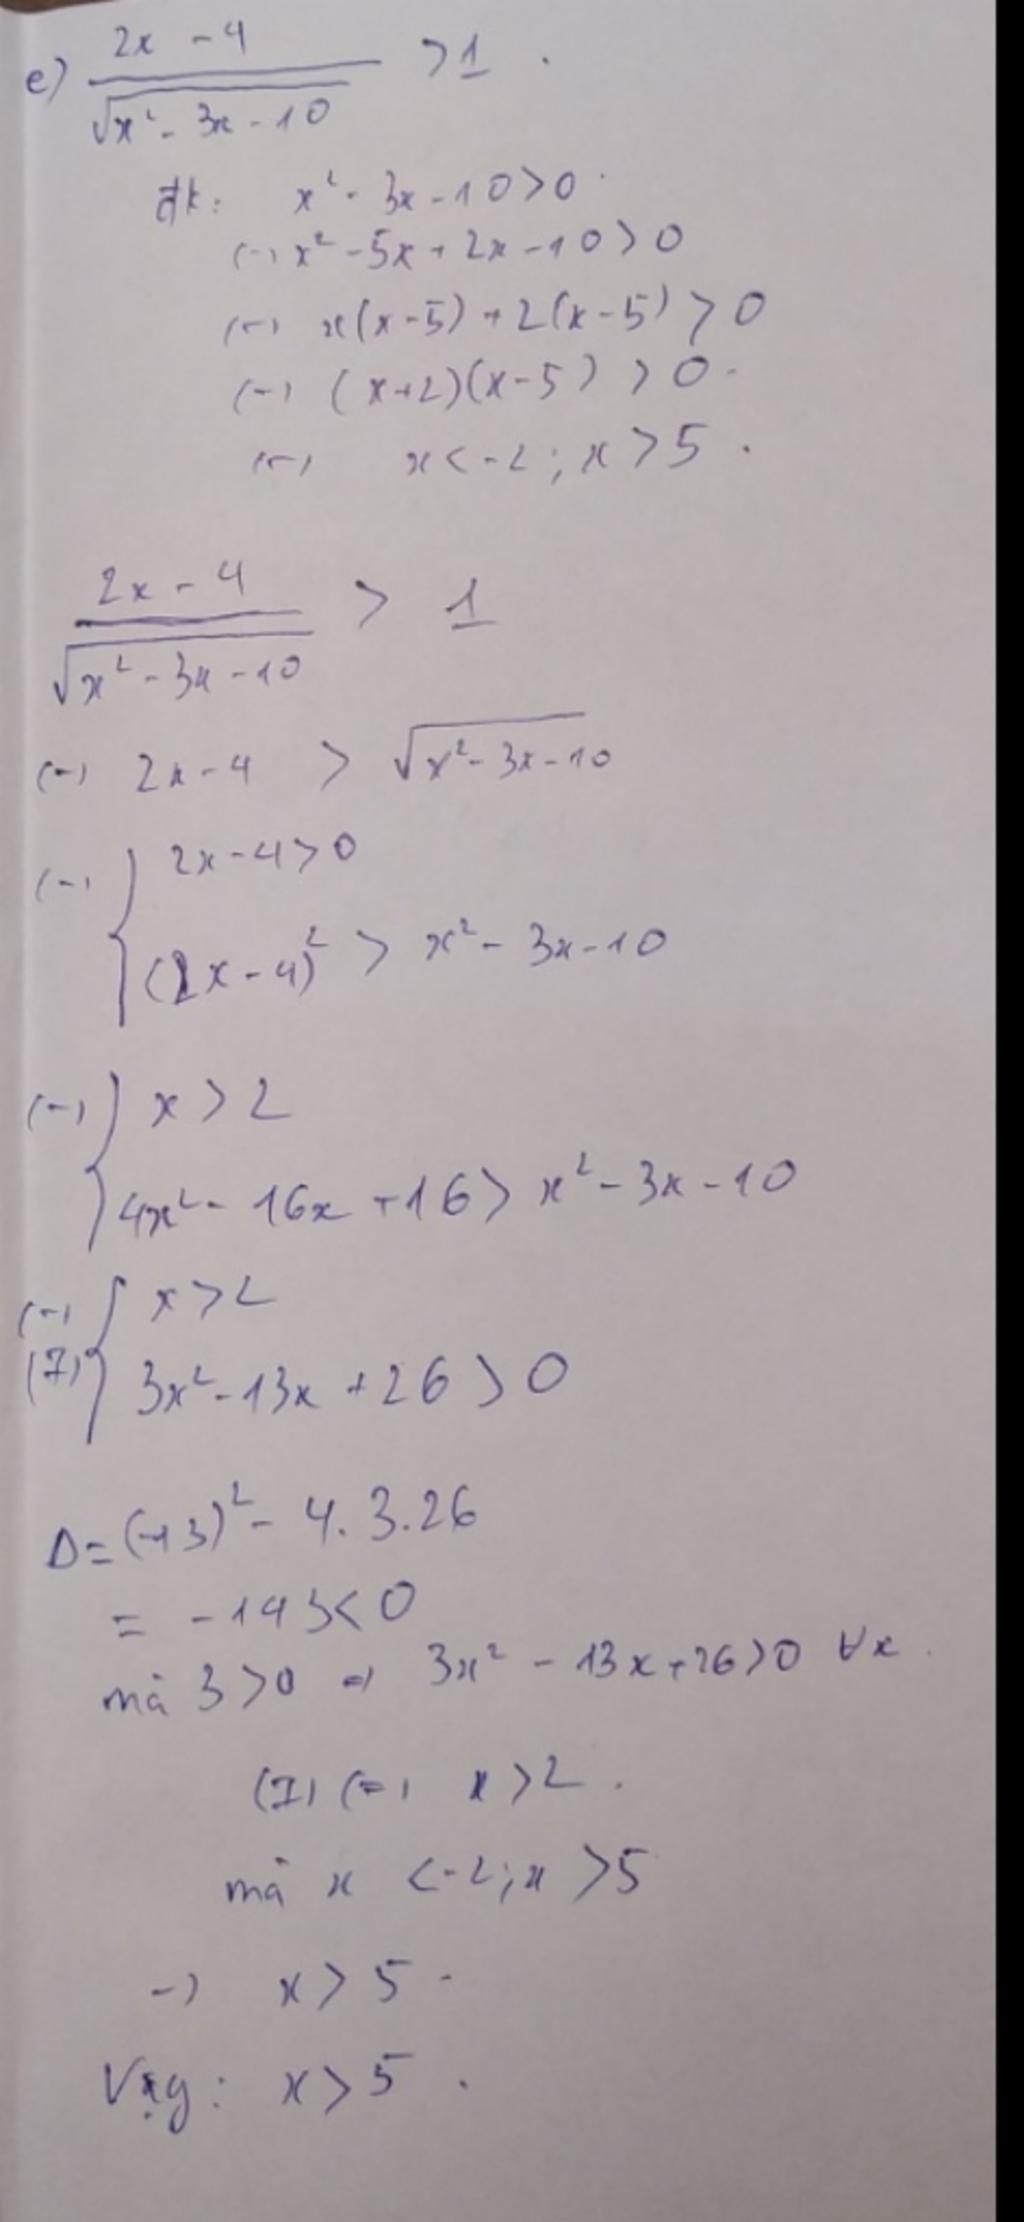 e) (2x - 4)/√(x² - 3x - 10) > 1.
đk: x² - 3x - 10 > 0.
(-) x² - 5x + 2x - 10 > 0
(-) x(x - 5) + 2(x - 5) > 0
(-) (x + 2)(x - 5) > 0.
(-) x < -2 ; x > 5.
(2x - 4)/√(x² - 3x - 10) > 1
(-) 2x - 4 > √(x² - 3x - 10)
(-) { 2x - 4 > 0
(2x - 4)² > x² - 3x - 10
(-) { x > 2
4x² - 16x + 16 > x² - 3x - 10
(-) { x > 2
(I) 3x² - 13x + 26 > 0
Δ = (-13)² - 4.3.26
= -143 < 0
mà 3 > 0 => 3x² - 13x + 26 > 0 ∀x.
(I) (=) x > 2.
mà x < -2 ; x > 5
-) x > 5.
Vậy : x > 5.